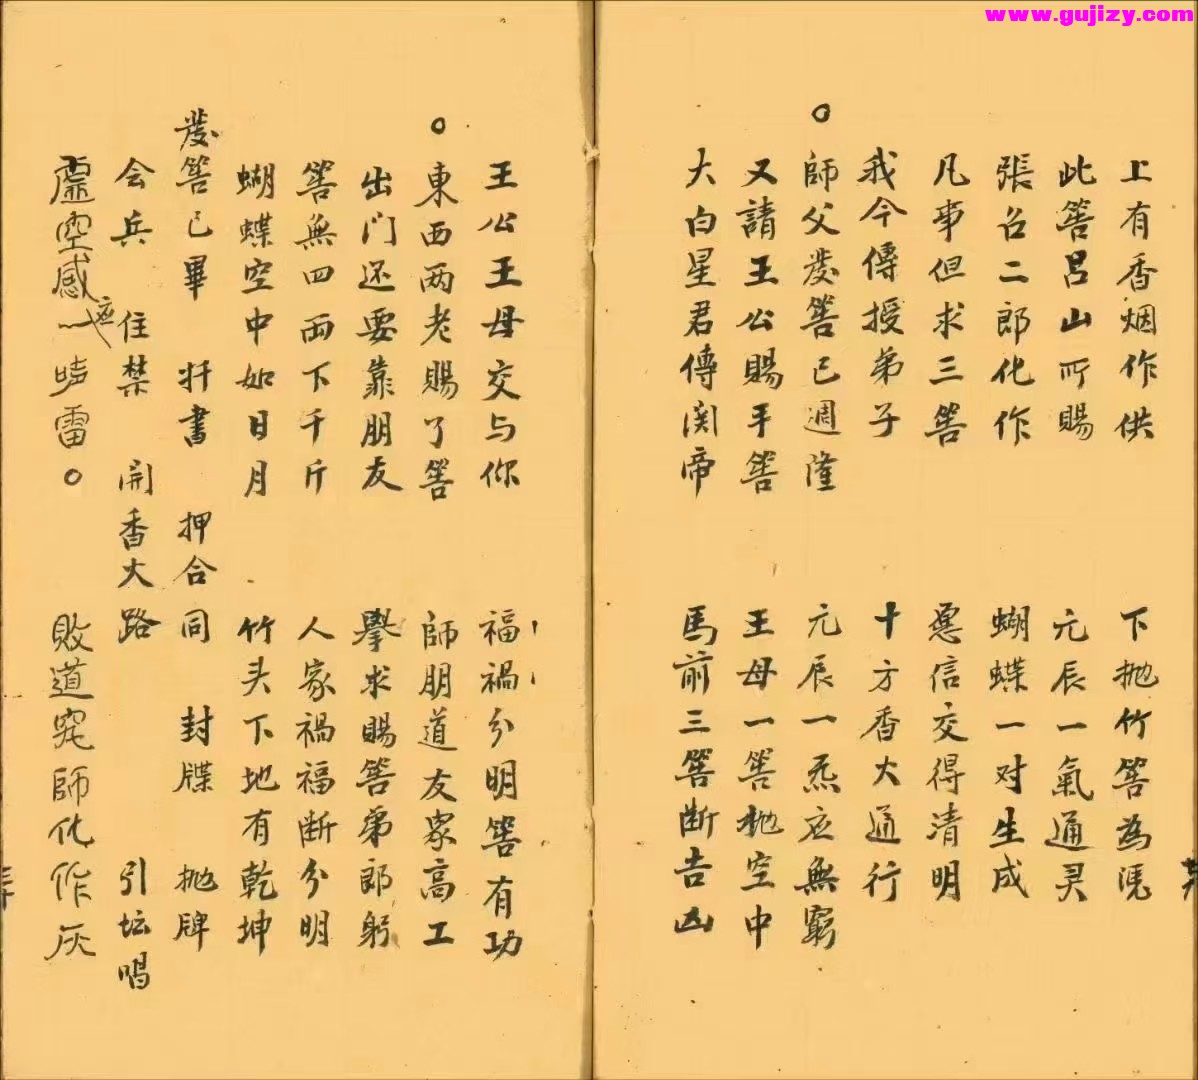 www.gujizy.com
上有香烟作供 下抛竹筶為凴
此筶吕山所賜 元辰一氣通灵
張名二郎化作 蝴蝶一对生成
凡事但求三筶 交得清明
我今傳授弟子 十方香火通行
○
師父發筶已週隆 元辰一炁应無窮
又請王公賜手筶 王母一筶抛空中
大白星君傳関帝 馬前三筶断吉凶
王公王母交与你 福禍分明筶有功
○
東西两老賜了筶 師朋道友眾高工
出门还要靠朋友 擧求賜筶弟郎躬
筶無四両下千斤 人家禍福断分明
蝴蝶空中如日月 竹头下地有乾坤
發筶已畢 书書 押合同 封牒 抛牌
会兵 住禁 開香火路 引坛唱
虚空感应一声雷○ 敗道冤師化作灰